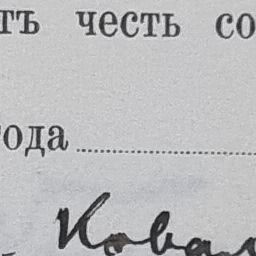 тъ честь со
года
Ковал